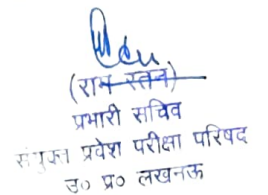 (राम रतन)
प्रभारी सचिव
संयुक्त प्रवेश परीक्षा परिषद
उ० प्र० लखनऊ